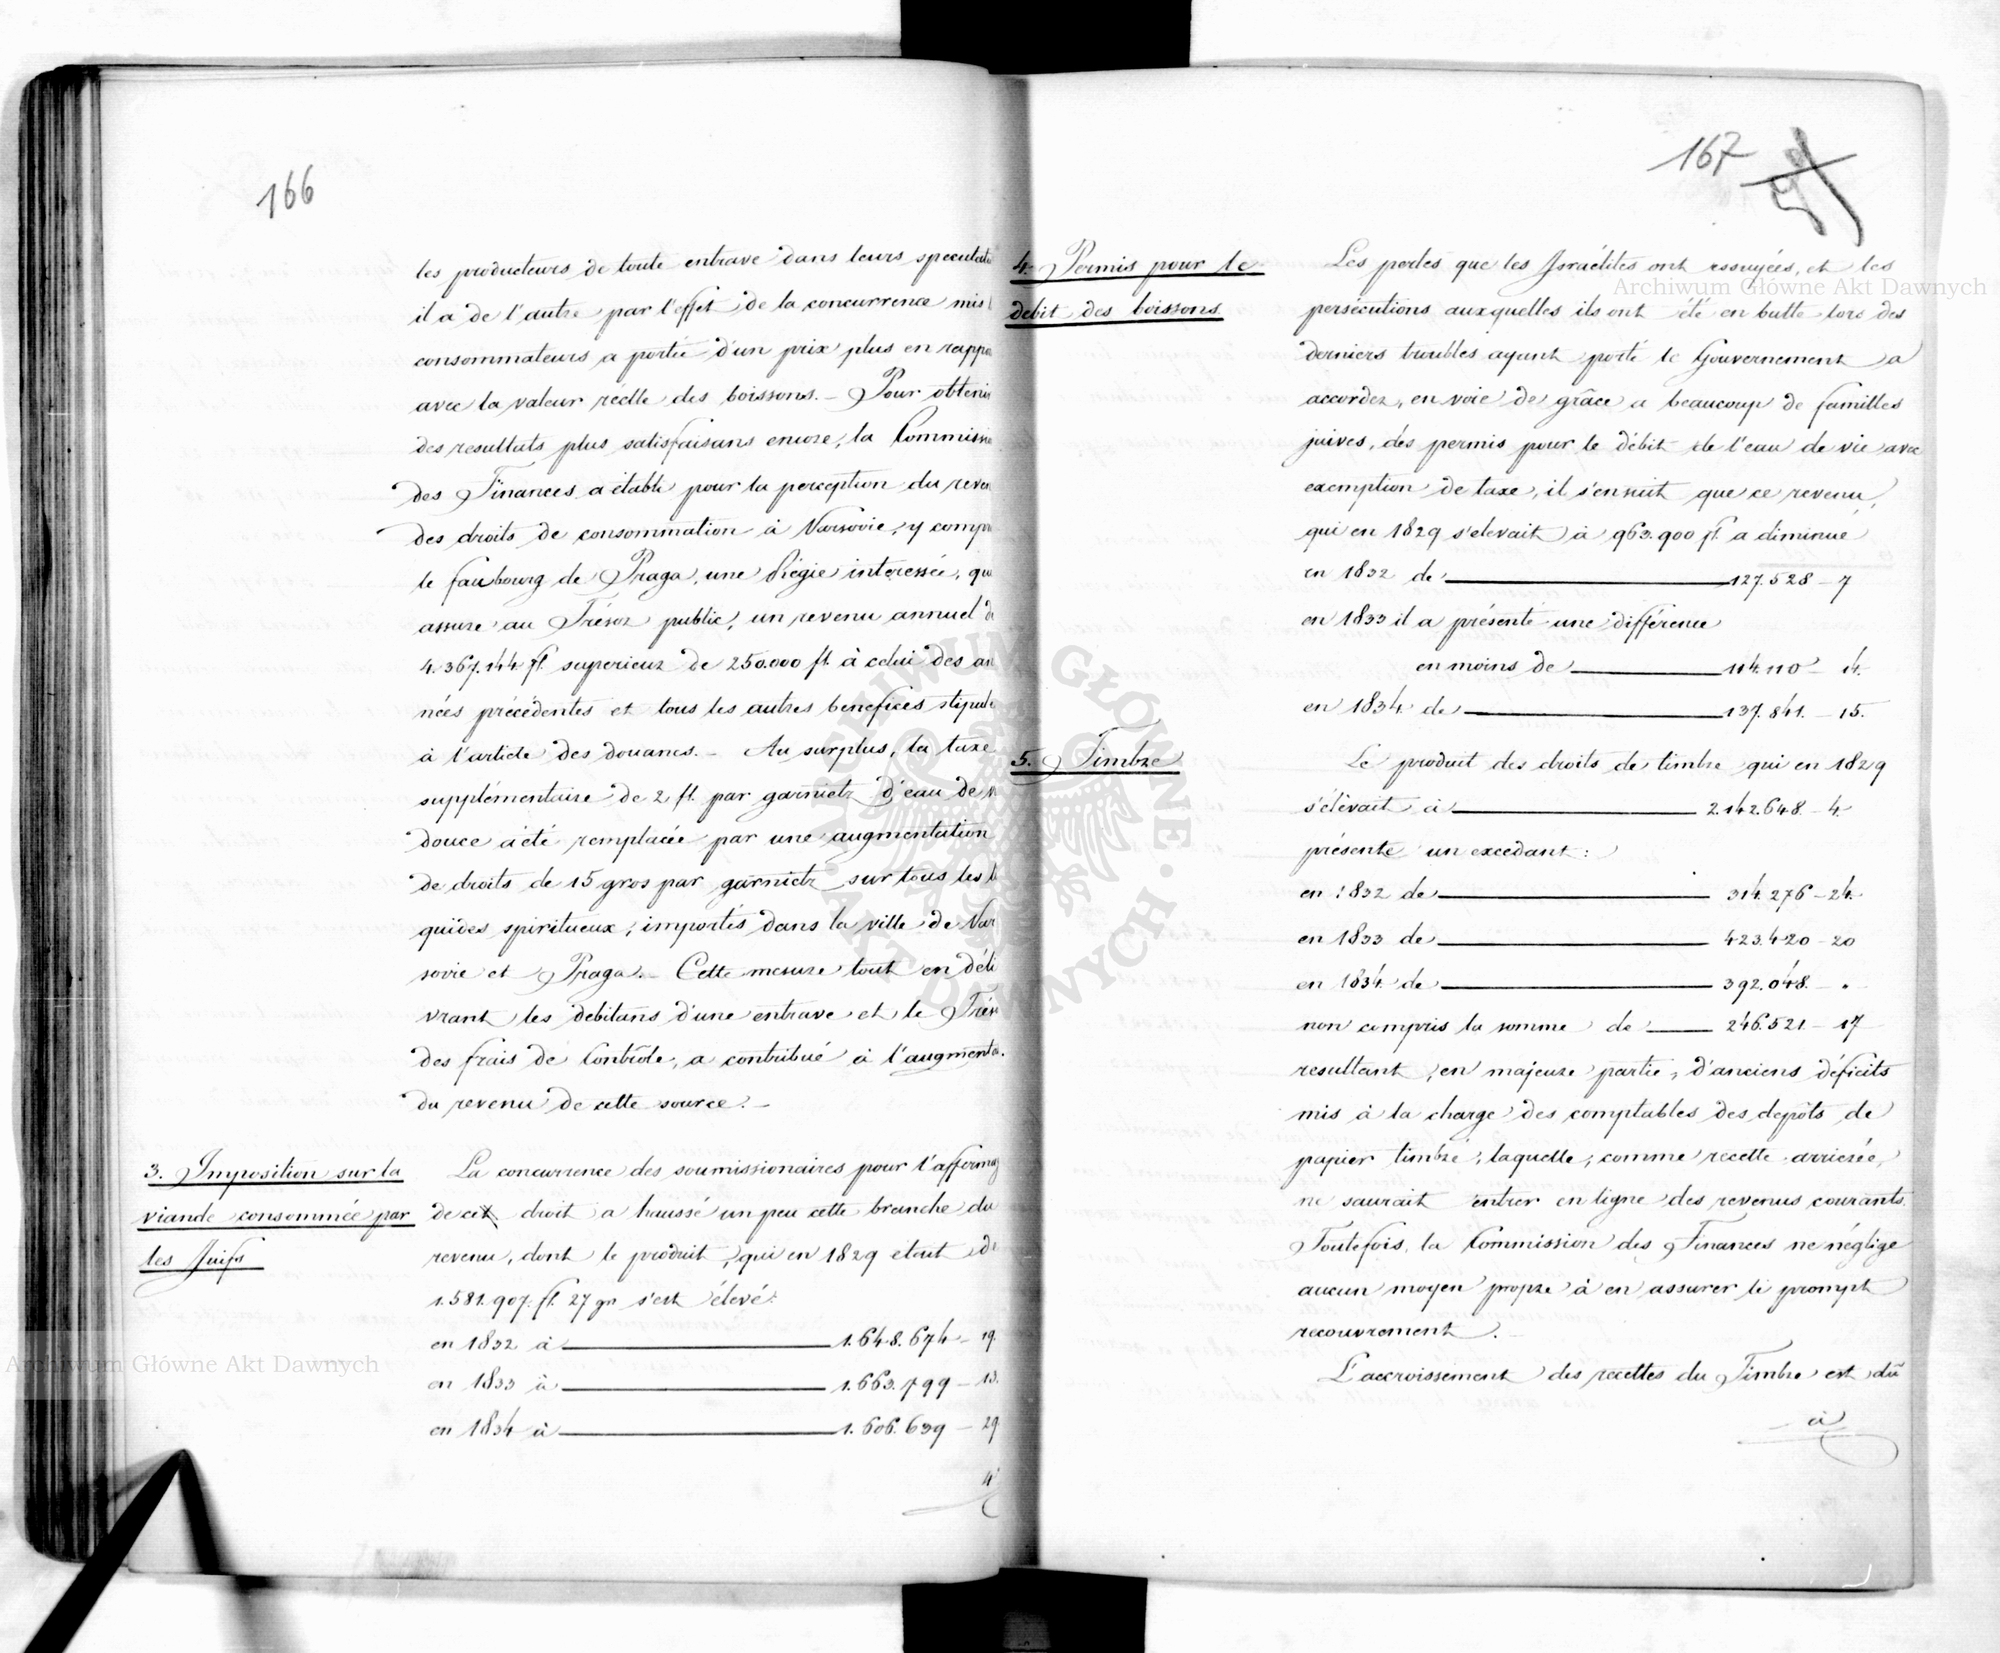 166
les producteurs de toute entrave dans leurs speculati
il a de l'autre par l'effet de la concurrence mis l
consommateurs a portée d'un prix plus en rappo
avec la valeur réelle des boissons. – Pour obtenir
des resultats plus satisfaisans encore, la Commissio
des Finances a établi pour la perception du reven
des droits de consommation à Varsovie, y compri
le faubourg de Praga, une Régie interessée, qui
assure au Trésor public, un revenu annuel d
4.367.144 fl. superieur de 250.000 fl. à celui des an
nées précédentes et tous les autres benefices stipulé
à l'article des douanes. – Au surplus, la taxe
supplémentaire de 2 fl. par garnietz d'eau de v
douce a été remplacée par une augmentation
de droits de 15 gros par garnietz sur tous les li
quides spiritueux, importés dans la ville de Var
sovie et Praga. – Cette mesure tout en déli
vrant les debitans d'une entrave et le Trés
des frais de Contrôle, a contribué à l'augmenta.
du revenu de cette source. –
3. Imposition sur la
viande consommée par
les Juifs
La concurrence des soumissionaires pour l'affermag
de cet droit a haussé un peu cette branche du
revenu, dont le produit, qui en 1829 était de
1.581.907. fl. 27 gr. s'est élevé:
en 1832 à 1.648.674 – 19.
en 1833 à 1.663.799 – 13.
en 1834 à 1.606.639 – 29
4
167
4. Permis pour le
debit des boissons.
Les pertes que les Israélites ont essuyées, et les
persécutions auxquelles ils ont été en butte lors des
derniers troubles ayant porté le Gouvernement a
accorder, en voie de grâce a beaucoup de familles
juives, des permis pour le débit de l'eau de vie avec
exemption de taxe, il s'ensuit que ce revenu,
qui en 1829 s'elevait à 963.900 fl. a diminué
en 1832 de 127.528 – 7
en 1833 il a présenté une différence
en moins de 114.110 – 4.
en 1834 de 137.841. – 15.
5. Timbre
Le produit des droits de timbre qui en 1829
s'élevait à 2.142.648. – 4.
présente un excedant:
en 1832 de 314.276 – 24.
en 1833 de 423.420 – 20
en 1834 de 392.048. – "
non compris la somme de 246.521. – 17
resultant, en majeure partie, d'anciens déficits
mis à la charge des comptables des depôts de
papier timbré, laquelle, comme recette arrierée,
ne saurait entrer en ligne des revenus courants.
Toutefois, la Commission des Finances ne néglige
aucun moyen propre à en assurer le prompt
recouvrement. –
L'accroissement des recettes du Timbre est dû
à
Archiwum Główne Akt Dawnych
Archiwum Główne Akt Dawnych
ARCHIWUM GŁÓWNE · AKT DAWNYCH ·